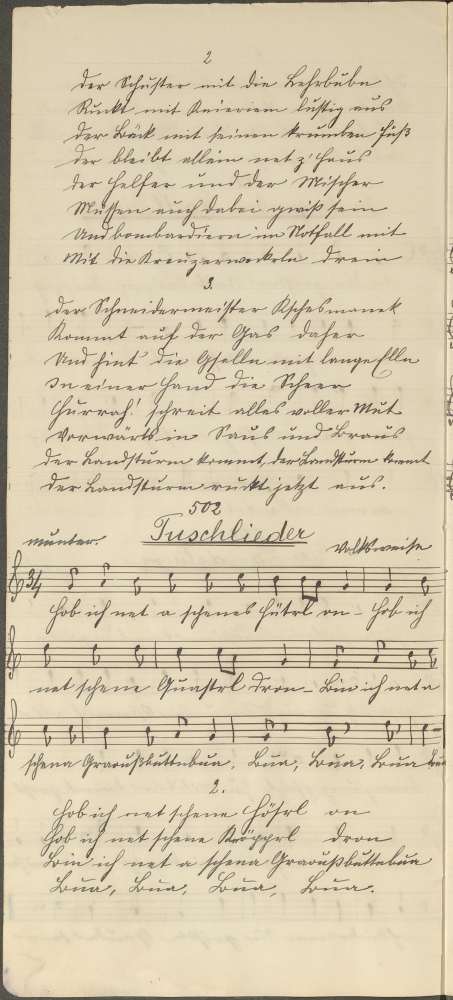 2
der Schuster mit die Lehrbubn
Ruckt mit Knieriem lustig aus
Der Bäck mit seinen krumben Füß
der bleibt allein net z'Haus
der Helfer und der Mischer
Müssen auch dabei gwiß sein
Und bombardiern im Notfall mit
Mit die Kreuzerweckeln drein
3.
der Schneidermeister
Kommt auf der Gas daher
Und hint die Gselln mit lange Elln
In einer Hand die Scheer
Hurrah! schreit alles voller Mut
Vorwärts in Saus und Braus
der Landsturm kommt, der Landsturm kommt
der Landsturm ruckt jetzt aus.
502
Tuschlieder
munter. Volksweise
3/4
Hob ich net a schenes Hütrl on - Hob ich
net schene Quastrl dron - Bin ich net a
schena Graoußbuttnbua, Bua, Bua, Bua Bua
2.
Hob ich net schene Hösrl on
Hob ich net schene Knöpprl dron
Bin ich net a schena Graoußbuttnbua
Bua, Bua, Bua, Bua.